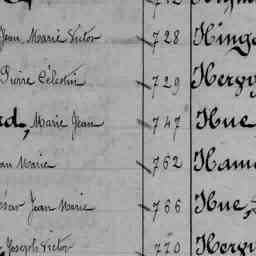 Jean Marie Victor 728
Pierre Célestin 729 Herv
rd, Marie Jean 747 Hue
an Marie 762 Ham
ésar Jean Marie 766 Hue,
Joseph Victor 770 Herv